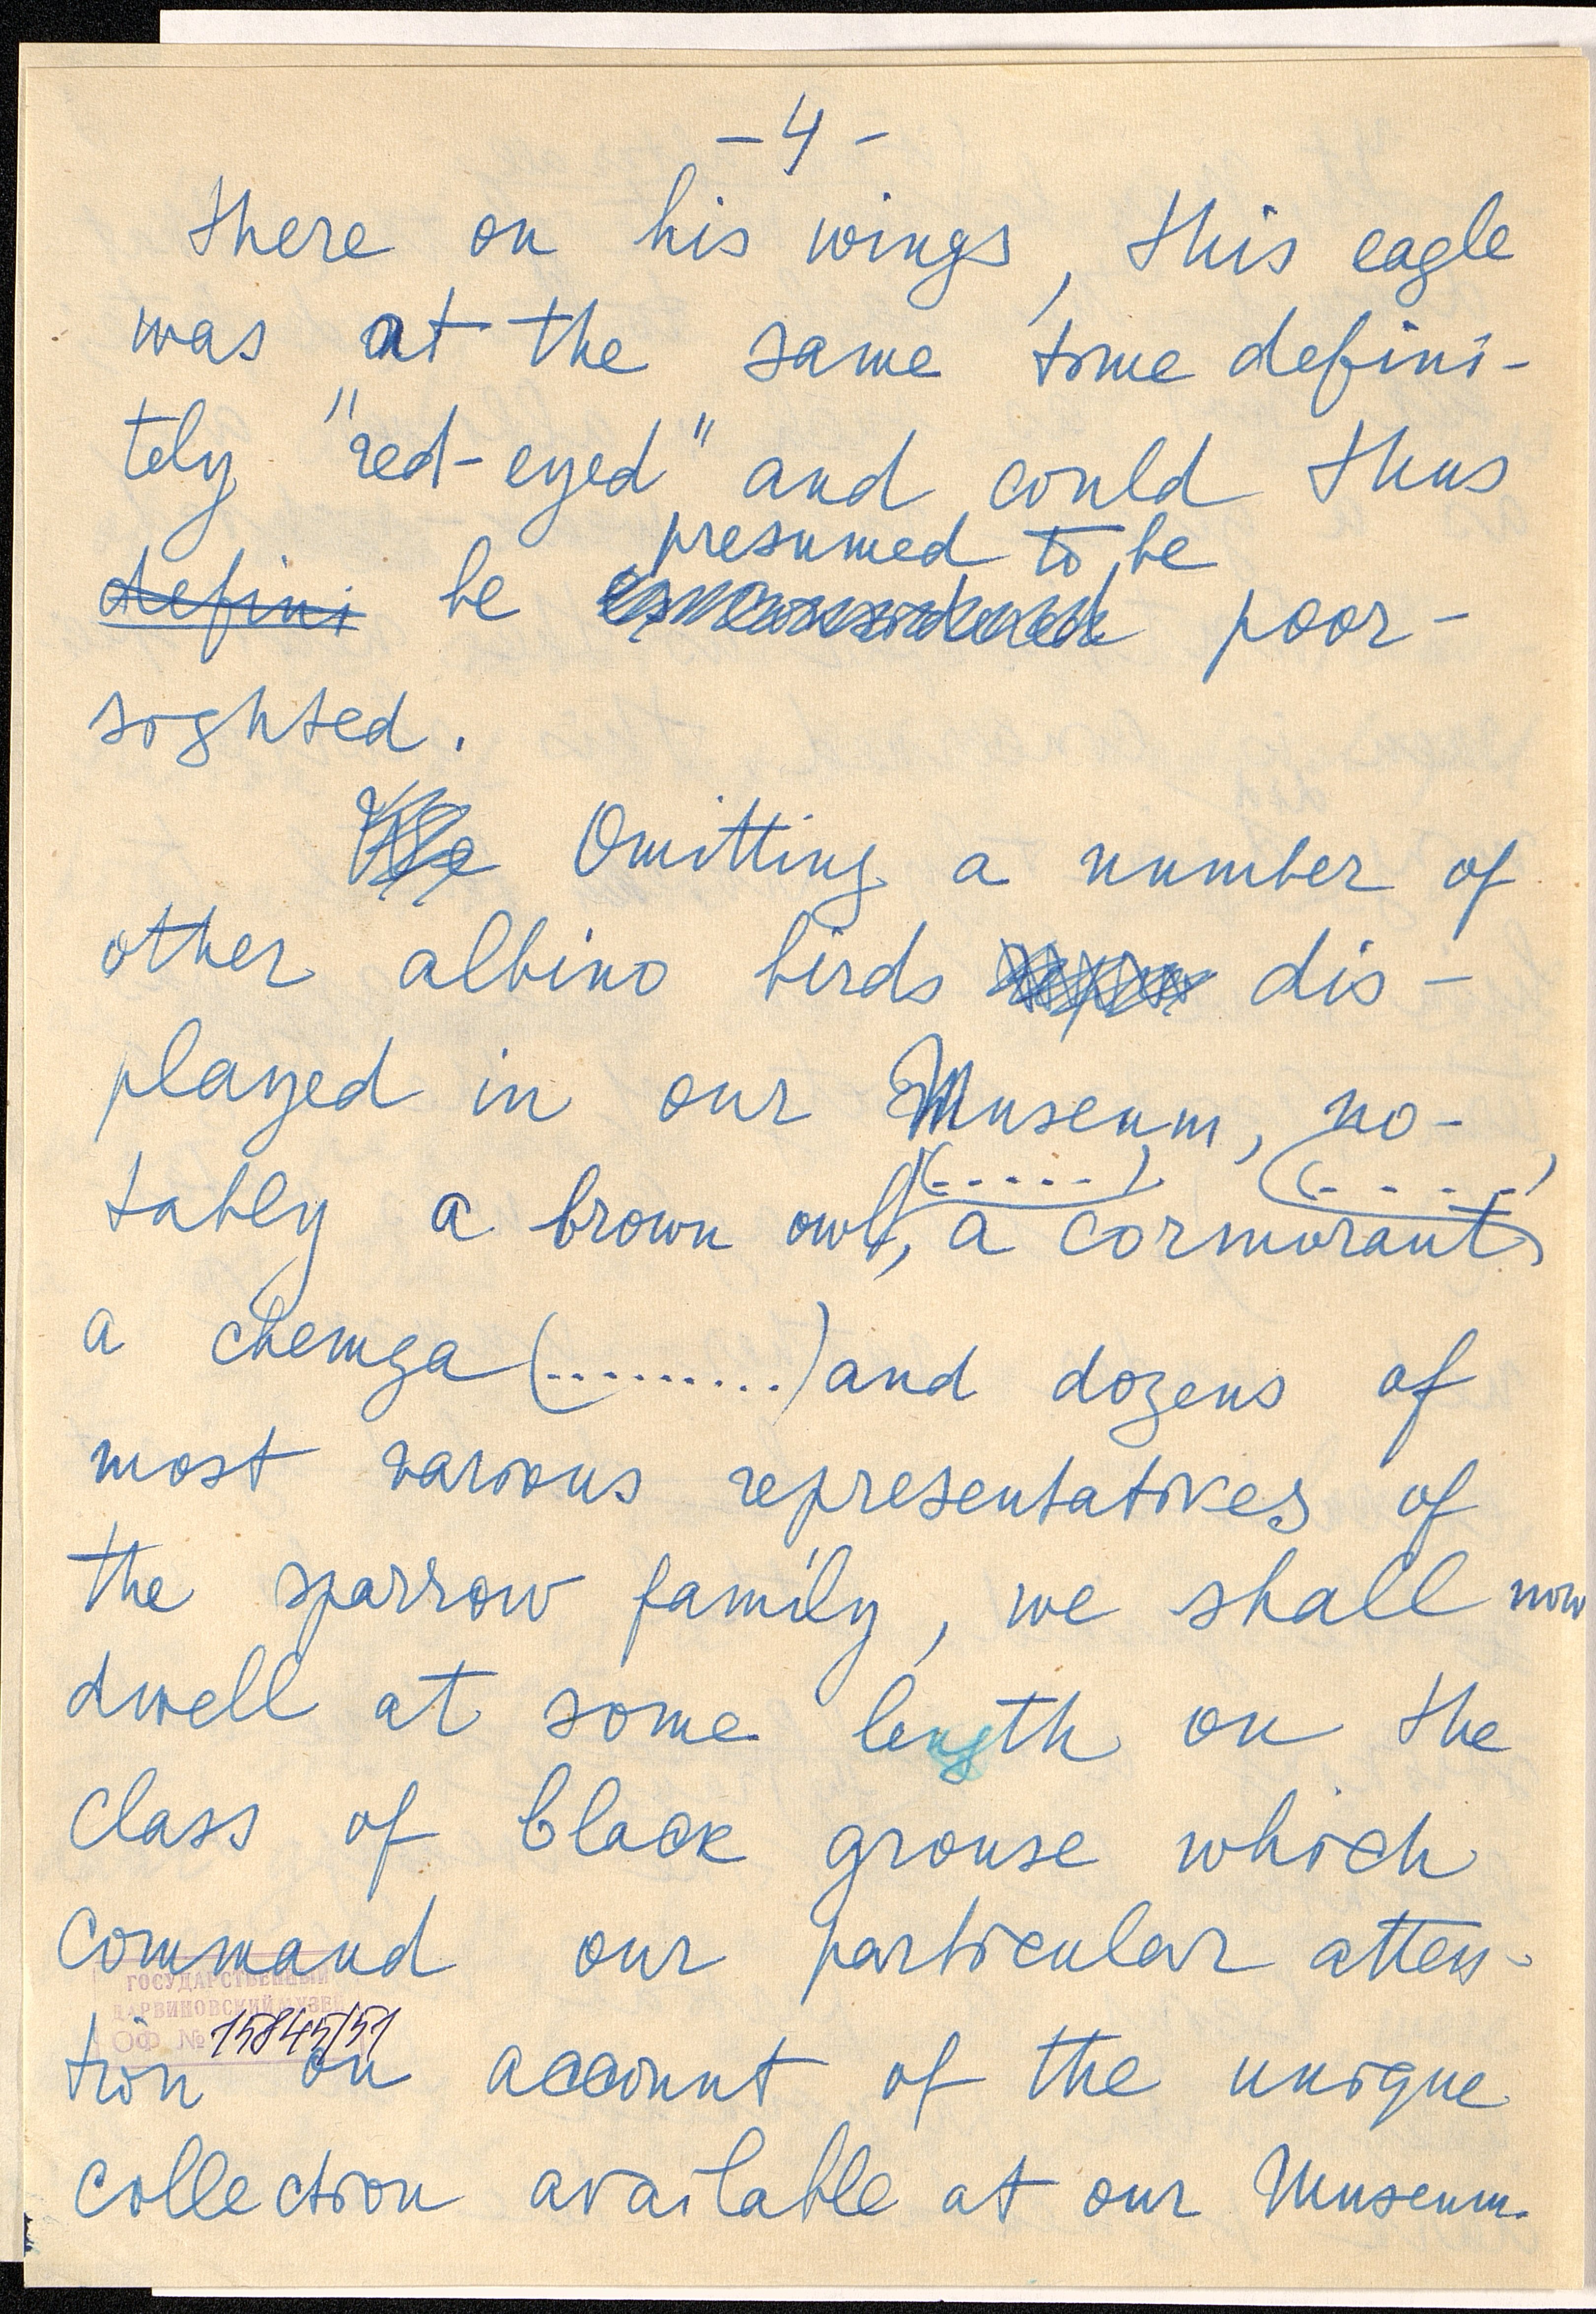 - 4 -
there on his wings, this eagle
was at the same time defini-
tely "red-eyed" and could thus
presumed to be
defini be poor-
sighted.
We Omitting a number of
other albino birds dis-
played in our Museum, no-
(.....) (.....),
tably a brown owl, a cormorant,
a chemga (.........) and dozens of
most various representatives of
the sparrow family, we shall now
dwell at some length on the
class of black grouse which
command our particular atten-
ГОСУДАРСТВЕННЫЙ
ДАРВИНОВСКИЙ МУЗЕЙ
ОФ № 15845/51
tion on account of the unique
collection available at our Museum.